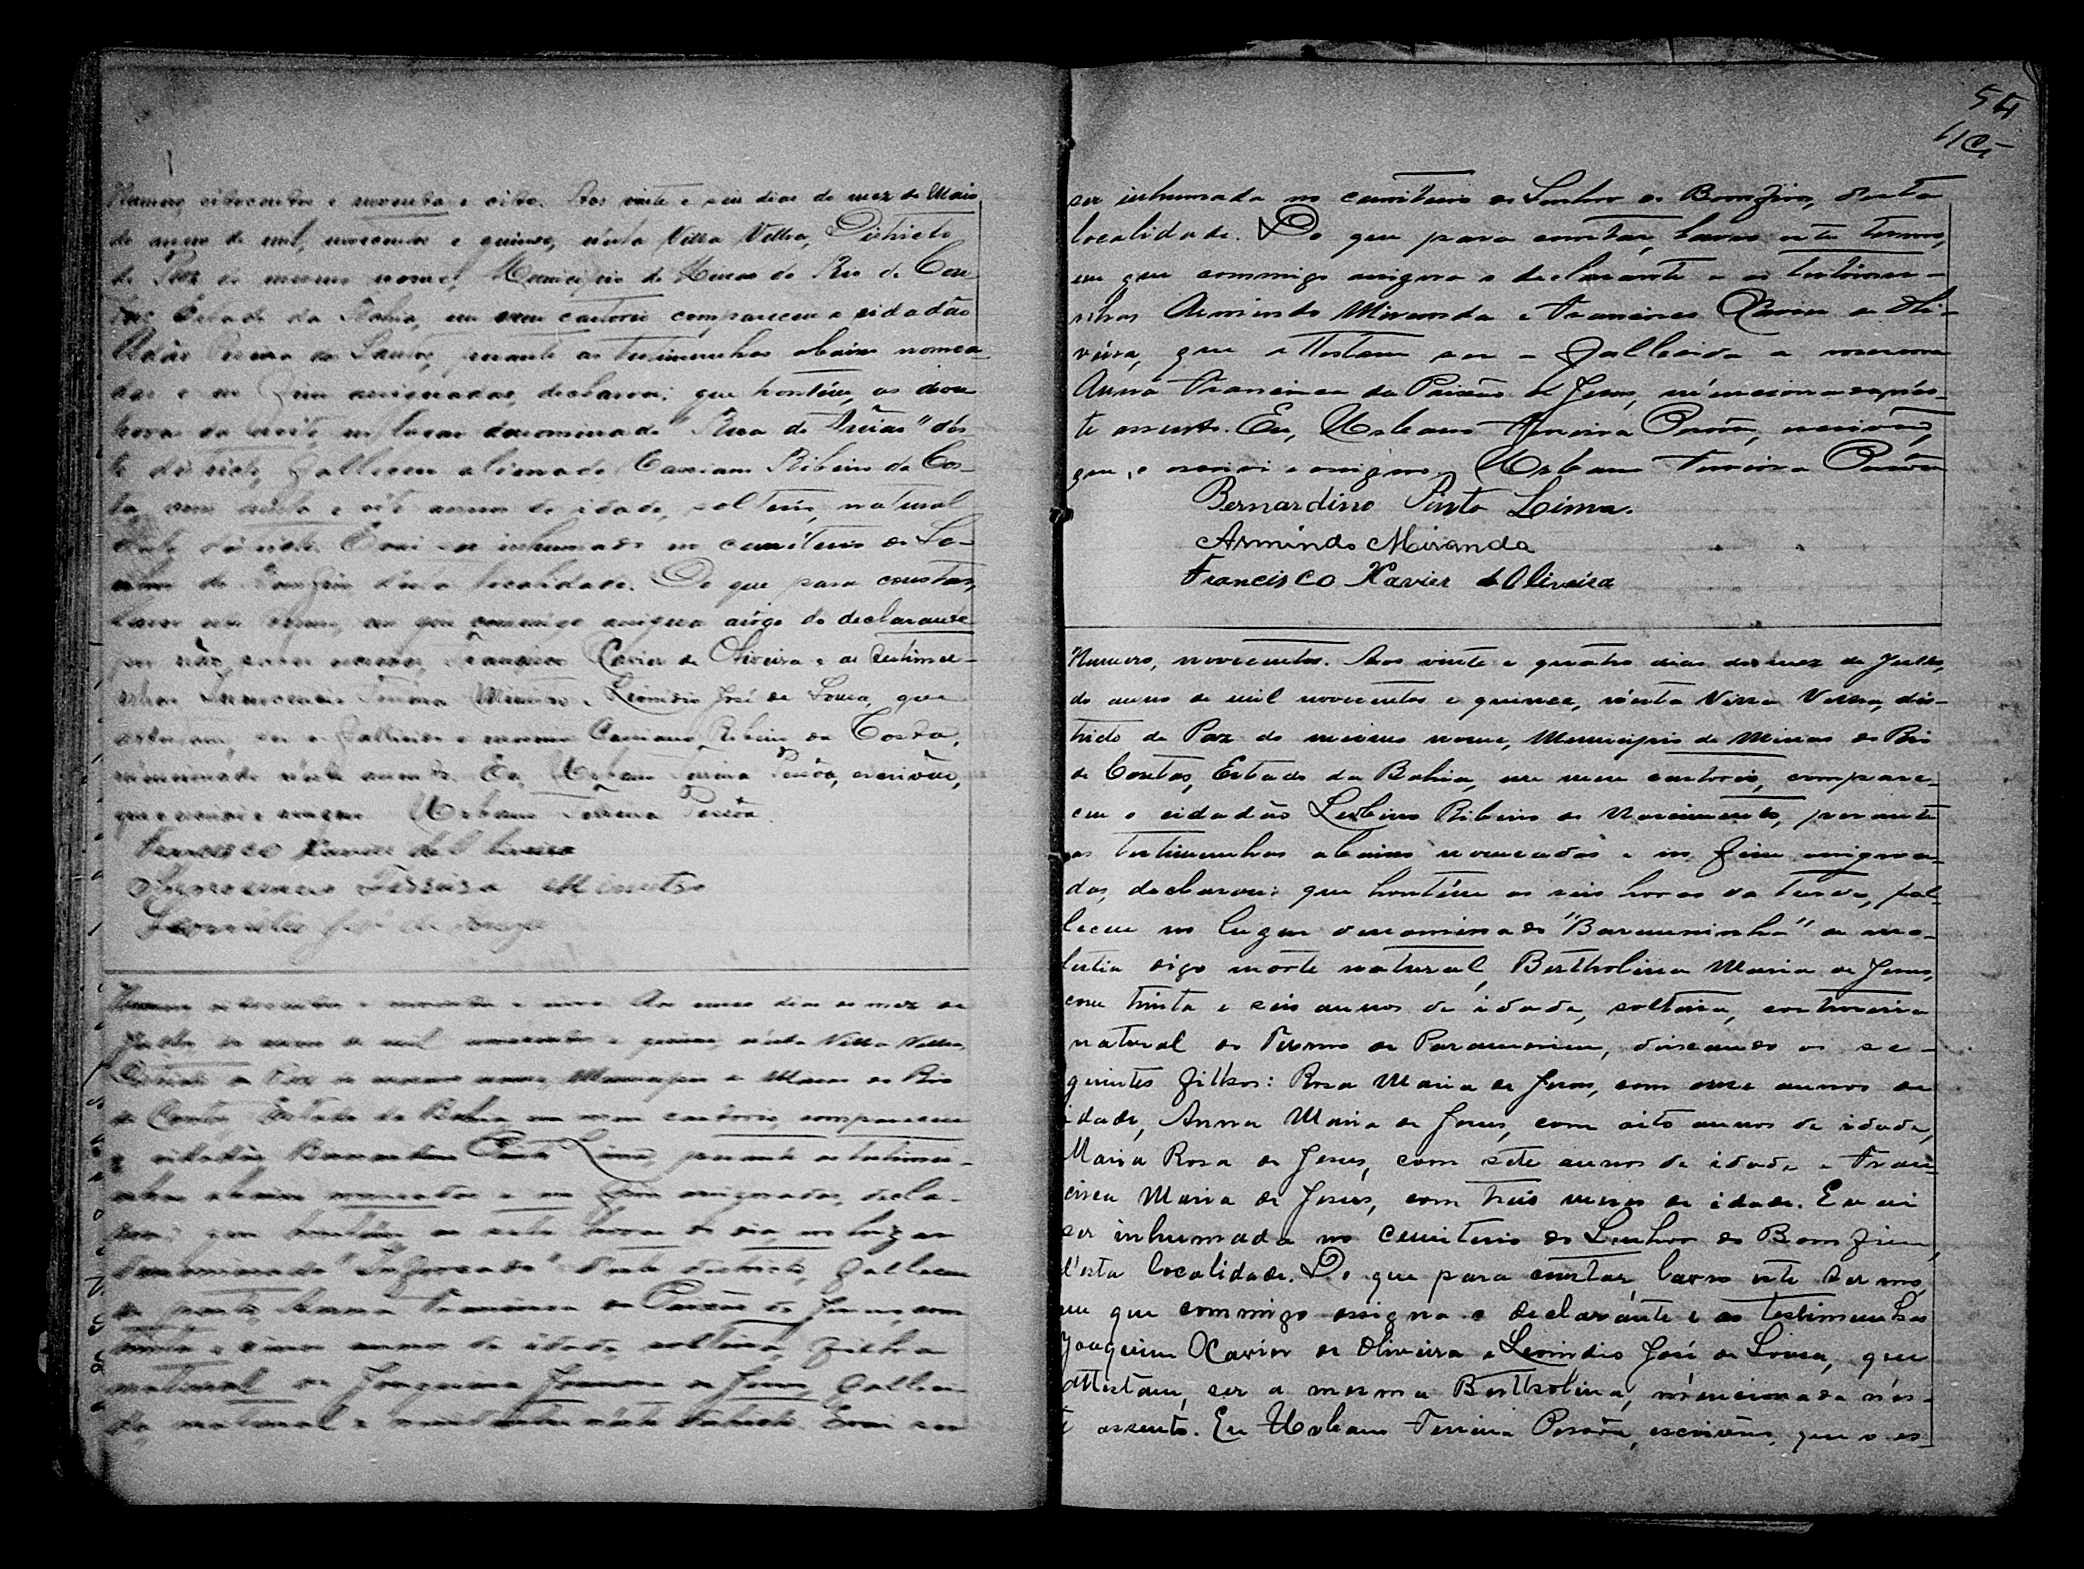 Numero, oitocentos e noventa e oito. Aos vinte e seis dias do mez de Maio
do anno de mil, novecentos e quinze, n'esta Villa Velha, Districto
de Paz do mesmo nome, Municipio de Minas do Rio de Con-
tas Estado da Bahia, em meu cartorio compareceu o cidadão
Pereira dos Santos, perante as testimunhas abaixo nomea-
das e no fim assignadas, declarou: que hontém, as
horas da noite no lugar denominado d'és-
te districto, falleceu alienado Cassiano Ribeiro da Cos-
ta, com e oito annos de idade, solteiro, natural
d'este districto. E vai ser inhumado no cemiterio do Se-
nhor do Bomfim d'esta localidade. Do que para constar,
lavro este termo, em que commigo assigna arôgo do declarante
por não saber escrever, Francisco Xavier de Oliveira e as testimu-
nhas Innocencio Ferreira Leonidio José de Souza, que
attestam, ser o fallecido o mesmo Cassiano Ribeiro da Costa,
mencionado n'este assento. Eu, Urbano Ferreira escrivão,
que o escrevi e assigno. Urbano Ferreira
Francisco Xavier de Oliveira
Innocencio Ferreira
Leonidio José de Souza
Numero oitocentos e noventa e nove. Aos dias do mez de
Julho do anno de mil novecentos e quinze, n'esta Villa Velha,
Districto de Paz do mesmo nome, Municipio de Minas do Rio
de Contas, Estado da Bahia, em meu cartorio, compareceu
o cidadão Bernardino Pinto Lima, perante as testimu-
nhas abaixo nomeadas e no fim assignadas, decla-
rou: que hontém as sete horas do dia, no lugar
denominado d'este districto, falleceu
de parto, Anna Francisca da Paixão de Jesus, com
trinta e cinco annos de idade, solteira, filha
natural de Joaquina de Jesus, falleci-
da, natural e n'este districto. E vai ser
54
ser inhumada no cemiterio do Senhor do Bomfim, desta
localidade. Do que para constar, lavro este termo,
em que commigo assigna o declarante e as testimu-
nhas Armindo Miranda e Francisco Xavier de Oli-
veira, que attestam ser a fallecida a mesma
Anna Francisca da Paixão de Jesus, mencionada nés-
te assento. Eu, Urbano Ferreira escrivão,
que o escrevi e assigno. Urbano Ferreira
Bernardino Pinto Lima.
Armindo Miranda
Francisco Xavier de Oliveira
Numero, novecentos. Aos vinte e quatro dias do mez de Julho,
do anno de mil novecentos e quinze, n'esta Villa Velha, dis-
tricto de Paz do mesmo nome, Municipio de Minas do Rio
de Contas, Estado da Bahia, em meu cartorio, compare-
ceu o cidadão Ribeiro do Nascimento, perante
as testimunhas abaixo nomeadas e no fim assigna-
das, declarou: que hontém as seis horas da tarde, fal-
leceu no lugar denominado "Barauninha" de mo-
lestia digo morte natural, Bertholina Maria de Jesus,
com trinta e seis annos de idade, solteira, costureira
natural do Termo de Paramerim, deixando os se-
guintes filhos: Rosa Maria de Jesus, com onze annos de
idade, Anna Maria de Jesus, com oito annos de idade,
Maria Rosa de Jesus, com sete annos de idade e Fran-
cisca Maria de Jesus, com trêis mezes de idade. E vai
ser inhumada no cemiterio do Senhor do Bomfim,
d'esta localidade. Do que para constar, lavro este termo,
em que commigo assigna o declarante e as testimunhas
Joaquim Xavier de Oliveira e Leonidio José de Souza, que
attestam, ser a mesma Bertholina, mencionada nés-
te assento. Eu Urbano Ferreira escrivão, que o es-